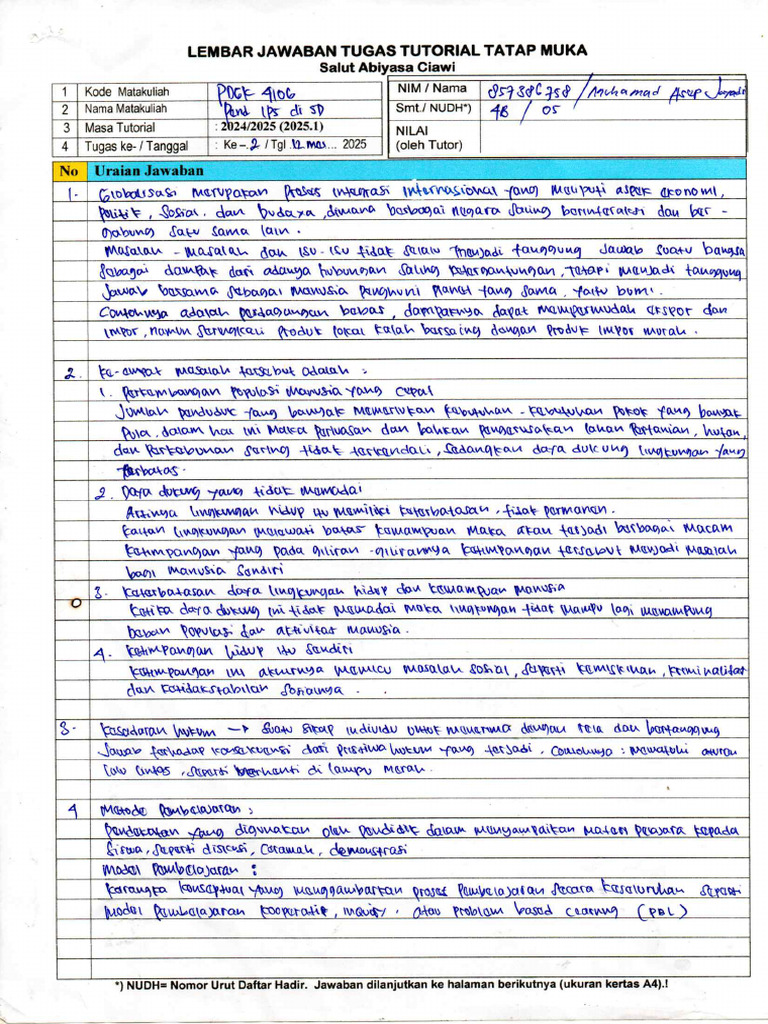 LEMBAR JAWABAN TUGAS TUTORIAL TATAP MUKA
Salut Abiyasa Ciawi
1 Kode Matakuliah PDGK 4106
2 Nama Matakuliah Pend IPS di SD
3 Masa Tutorial : 2024/2025 (2025.1)
4 Tugas ke- / Tanggal : Ke – .2 / Tgl .12 mar... 2025
NIM / Nama 857386758 / Muhamad Asep
Smt./ NUDH*) 4B / 05
NILAI
(oleh Tutor)
No Uraian Jawaban
1. Globalisasi merupakan proses integrasi internasional yang meliputi aspek ekonomi,
politik, sosial. dan budaya, dimana berbagai negara saling berinteraksi dan ber-
gabung satu sama lain.
Masalah - masalah dan isu-isu tidak selalu menjadi tanggung jawab suatu bangsa
sebagai dampak dari adanya hubungan saling ketergantungan, tetapi menjadi tanggung
jawab bersama sebagai manusia penghuni planet yang sama, yaitu bumi.
Contohnya adalah perdagangan bebas, dampaknya dapat mempermudah ekspor dan
impor, namun seringkali produk lokal kalah bersaing dengan produk impor murah.
2. Ke-empat masalah tersebut adalah :
1. Perkembangan populasi manusia yang cepat
Jumlah penduduk yang banyak memerlukan kebutuhan - kebutuhan pokok yang banyak
pula, dalam hal ini maka perluasan dan bahkan pengerusakan lahan pertanian, hutan,
dan perkebunan sering tidak terkendali, sedangkan daya dukung lingkungan yang
terbatas.
2. Daya dukung yang tidak memadai
Artinya lingkungan hidup itu memiliki keterbatasan, tidak permanen.
Kaitan lingkungan melewati batas kemampuan maka akan terjadi berbagai macam
ketimpangan yang pada giliran -gilirannya ketimpangan tersebut menjadi masalah
bagi manusia sendiri
3. Keterbatasan daya lingkungan hidup dan kemampuan manusia
Ketika daya dukung ini tidak memadai maka lingkungan tidak mampu lagi menampung
beban populasi dan aktivitas manusia.
4. Ketimpangan hidup itu sendiri
Ketimpangan ini akhirnya memicu masalah sosial, seperti kemiskinan, kriminalitas
dan ketidakstabilan sosialnya.
3. Kesadaran hukum → suatu sikap individu untuk menerima dengan rela dan bertanggung
jawab terhadap konsekuensi dari peristiwa hukum yang terjadi. Contohnya : mematuhi aturan
lalu lintas, seperti berhenti di lampu merah.
4 Metode Pembelajaran :
Pendekatan yang digunakan oleh pendidik dalam menyampaikan materi pelajara kepada
siswa, seperti diskusi, ceramah, demonstrasi
Model Pembelajaran :
Kerangka konseptual yang menggambarkan proses pembelajaran secara keseluruhan seperti
model pembelajaran kooperatif, inquiry. atau problem based learning (PBL)
*) NUDH= Nomor Urut Daftar Hadir. Jawaban dilanjutkan ke halaman berikutnya (ukuran kertas A4).!